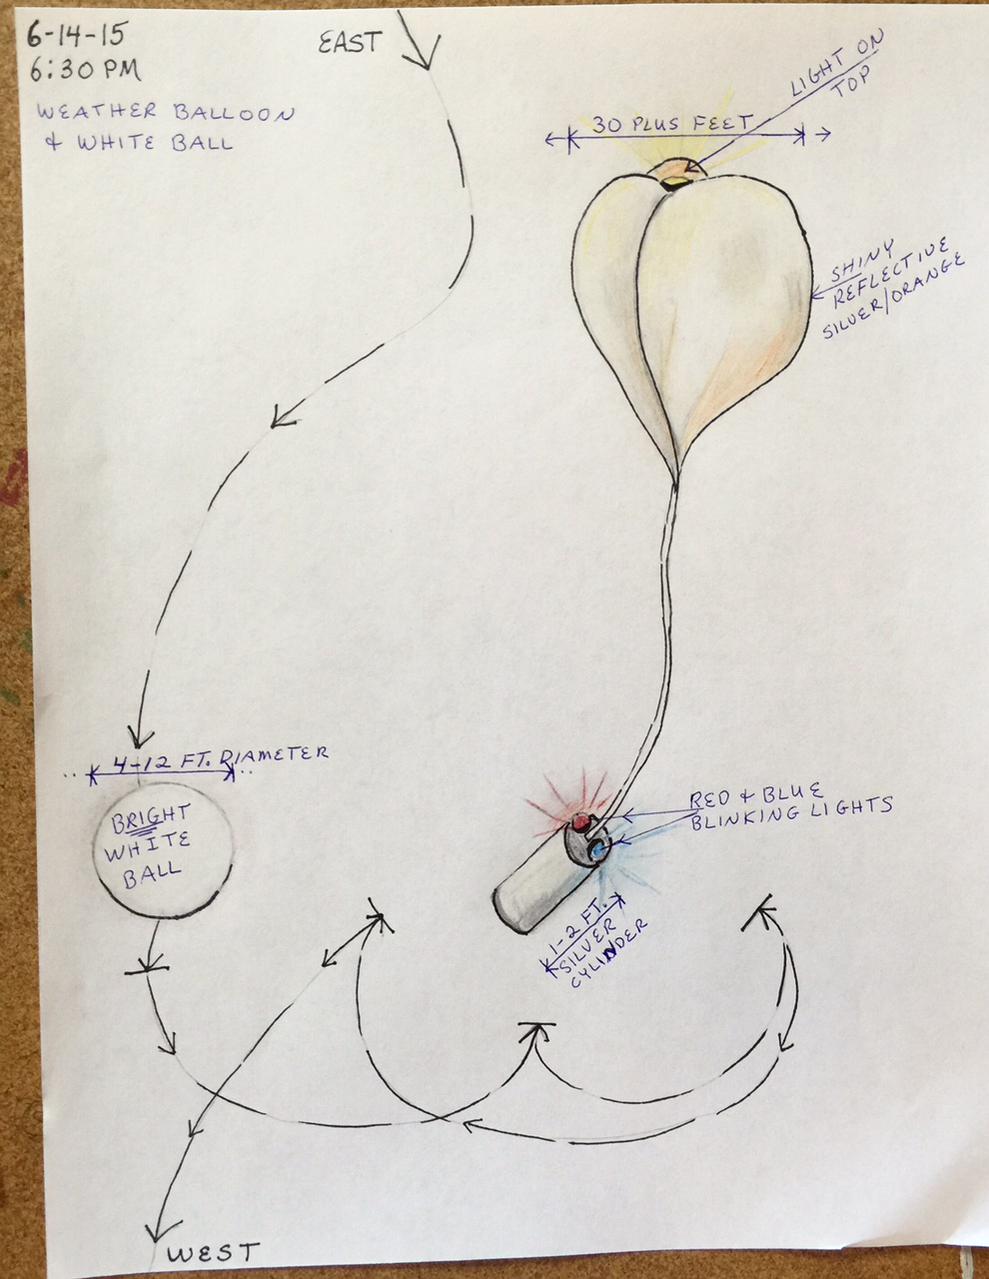 6-14-15
6:30 PM
WEATHER BALLOON
& WHITE BALL
EAST
LIGHT ON
TOP
30 PLUS FEET
SHINY
REFLECTIVE
SILVER/ORANGE
4-12 FT. DIAMETER
BRIGHT
WHITE
BALL
RED & BLUE
BLINKING LIGHTS
1-2 FT.
SILVER
CYLINDER
WEST